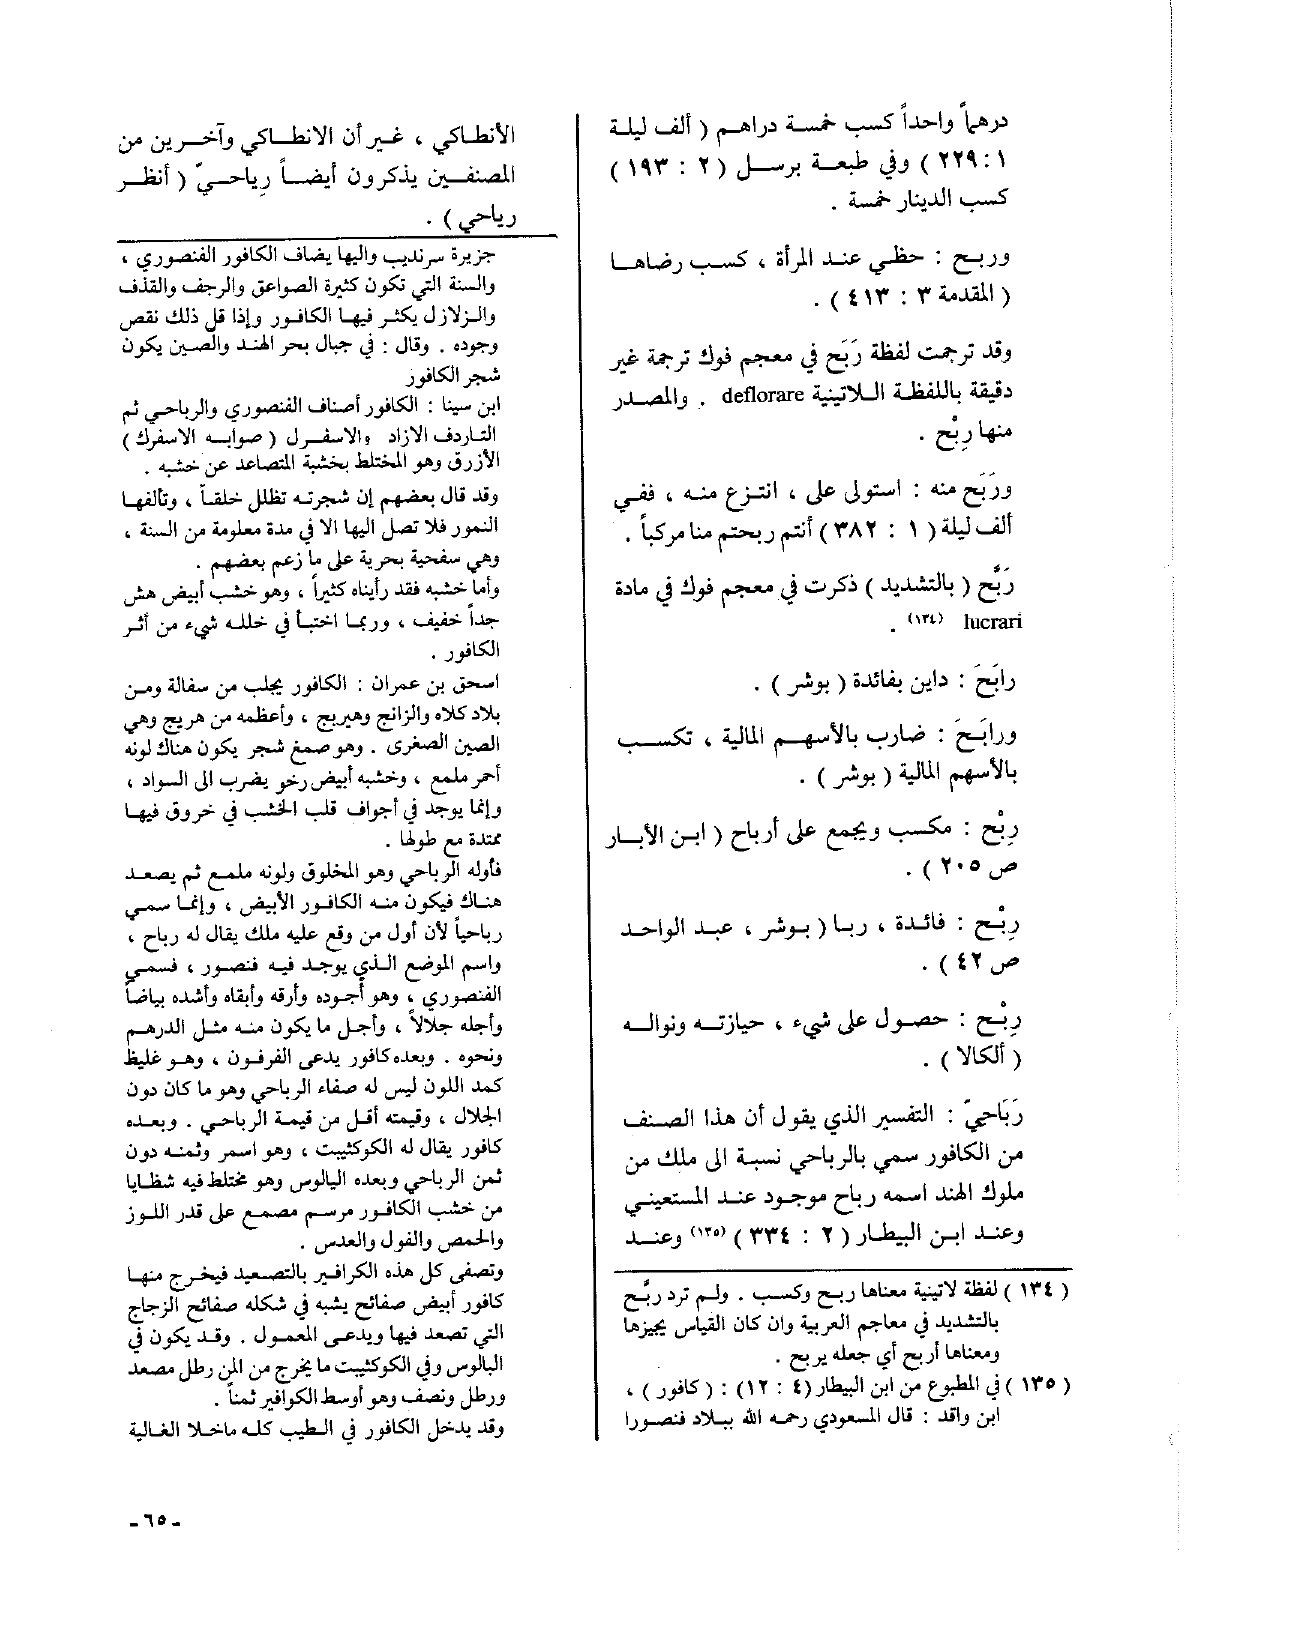 درهماً واحداً كسب خمسة دراهم ( ألف ليلة
١ : ٢٢٩ ) وفي طبعة برسل ( ٢ : ١٩٣ )
كسب الدينار خمسة .
وربح : حظي عند المرأة ، كسب رضاها
( المقدمة ٣ : ٤١٣ ) .
وقد ترجمت لفظة رَبَح في معجم فوك ترجمة غير
دقيقة باللفظة اللاتينية deflorare . والمصدر
منها رِبْح .
ورَبَح منه : استولى على ، انتزع منه ، ففي
ألف ليلة ( ١ : ٣٨٢ ) أنتم ربحتم منا مركباً .
رَبَّح ( بالتشديد ) ذكرت في معجم فوك في مادة
lucrari (١٣٤) .
رابَحَ : داين بفائدة ( بوشر ) .
ورابَحَ : ضارب بالأسهم المالية ، تكسب
بالأسهم المالية ( بوشر ) .
رِبْح : مكسب ويجمع على أرباح ( ابن الابار
ص ٢٠٥ ) .
رِبْح : فائدة ، ربا ( بوشر ، عبد الواحد
ص ٤٢ ) .
رِبْح : حصول على شيء ، حيازته ونواله
( ألكالا ) .
رَبَاحِيّ : التفسير الذي يقول أن هذا الصنف
من الكافور سمي بالرباحي نسبة الى ملك من
ملوك الهند اسمه رباح موجود عند المستعيني
وعند ابن البيطار ( ٢ : ٣٣٤ ) (١٣٥) وعند
( ١٣٤ ) لفظة لاتينية معناها ربح وكسب . ولم ترد ربَّح
بالتشديد في معاجم العربية وان كان القياس يجيزها
ومعناها أربح أي جعله يربح .
( ١٣٥ ) في المطبوع من ابن البيطار (٤ : ١٢) : ( كافور ) ،
ابن واقد : قال المسعودي رحمه الله ببلاد فنصورا
الأنطاكي ، غير أن الانطاكي وآخرين من
المصنفين يذكرون أيضاً رِياحيّ ( أنظر
رياحي ) .
جزيرة سرنديب واليها يضاف الكافور الفنصوري ،
والسنة التي تكون كثيرة الصواعق والرجف والقذف
والزلازل يكثر فيها الكافور وإذا قل ذلك نقص
وجوده . وقال : في جبال بحر الهند والصين يكون
شجر الكافور
ابن سينا : الكافور أصناف الفنصوري والرباحي ثم
التاردف الازاد والاسفرل ( صوابه الاسفرك )
الأزرق وهو المختلط بخشبة المتصاعد عن خشبه .
وقد قال بعضهم إن شجرته تظلل خلقاً ، وتألفها
النمور فلا تصل اليها الا في مدة معلومة من السنة ،
وهي سفحية بحرية على ما زعم بعضهم .
وأما خشبه فقد رأيناه كثيراً ، وهو خشب أبيض هش
جداً خفيف ، وربما اختبأ في خلله شيء من أثر
الكافور .
اسحق بن عمران : الكافور يجلب من سفالة ومن
بلاد كلاه والزانج وهيريج ، وأعظمه من هريج وهي
الصين الصغرى . وهو صمغ شجر يكون هناك لونه
أحمر ملمع ، وخشبه أبيض رخو يضرب الى السواد ،
وإنما يوجد في أجواف قلب الخشب في خروق فيها
ممتدة مع طولها .
فأوله الرباحي وهو المخلوق ولونه ملمع ثم يصعد
هناك فيكون منه الكافور الأبيض ، وإنما سمي
رباحياً لأن أول من وقع عليه ملك يقال له رباح ،
واسم الموضع الذي يوجد فيه فنصور ، فسمي
الفنصوري ، وهو أجوده وأرقه وأبقاه وأشده بياضاً
وأجله جلالاً ، وأجل ما يكون منه مثل الدرهم
ونحوه . وبعده كافور يدعى الفرفون ، وهو غليظ
كمد اللون ليس له صفاء الرباحي وهو ما كان دون
الجلال ، وقيمته أقل من قيمة الرباحي . وبعده
كافور يقال له الكوكثيب ، وهو اسمر وثمنه دون
ثمن الرباحي وبعده البالوس وهو مختلط فيه شظايا
من خشب الكافور مرسم مصمع على قدر اللوز
والحمص والفول والعدس .
وتصفى كل هذه الكرافير بالتصعيد فيخرج منها
كافور أبيض صفائح يشبه في شكله صفائح الزجاج
التي تصعد فيها ويدعى المعمول . وقد يكون في
البالوس وفي الكوكثيب ما يخرج من المن رطل مصعد
ورطل ونصف وهو أوسط الكوافير ثمناً .
وقد يدخل الكافور في الطيب كله ماخلا الغالية
ـ ٦٥ ـ